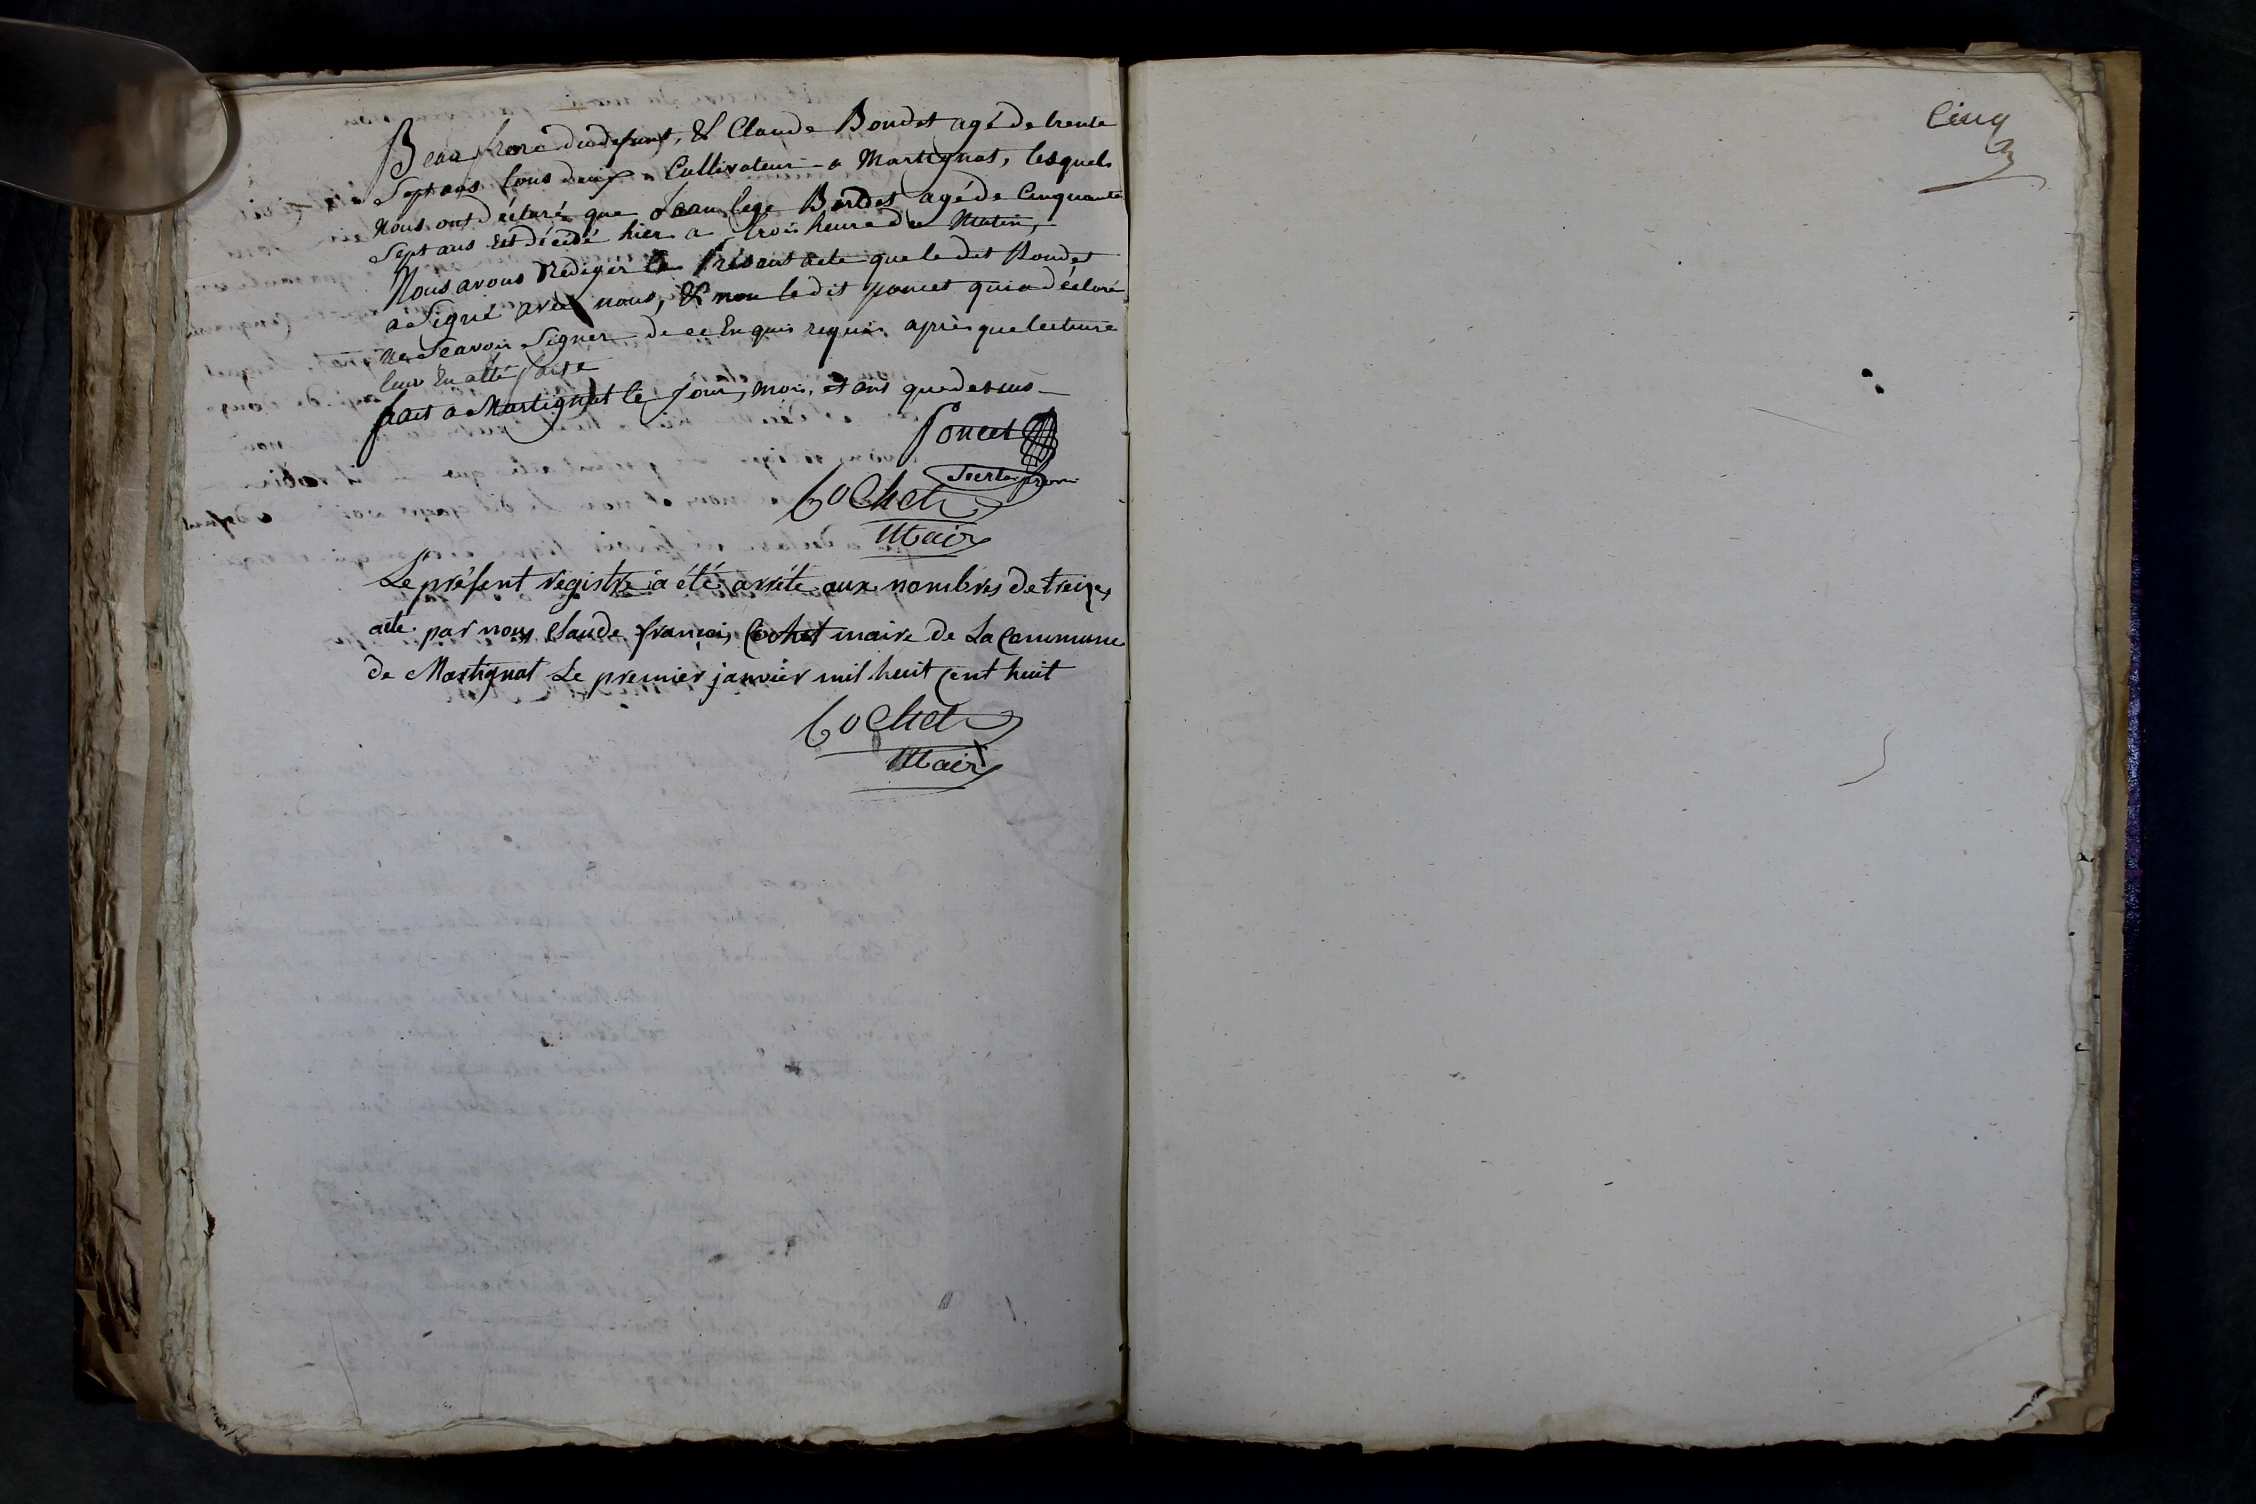 Beau frere du defunt, & Claude Bondet agé de trente
Sept ans tous deux Cultivateur a Martignat, lesquels
Nous ont déclaré que Jean Bordet agé de Cinquante
Sept ans est décédé hier a trois heure du Matin,
Nous avons Rediger le Présent acte que le dit Bondet
a Signé avec nous, & non le dit poncet qui a déclaré
ne Scavoir Signer de ce Enquis requis après que lecture
leur En a été faite
fait a Martignat le Jour, mois, et ans que dessus
Poncet
Cochet
Maire
Le présent régistre a été arrété aux nombres de treize
acte par nous Claude françois Cochet maire de La Commune
de Martignat Le premier janvier mil huit cent huit
Cochet
Maire
Cinq